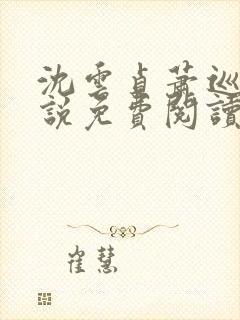 沈雲貞蕭巡
說免費閱讀
崔慧